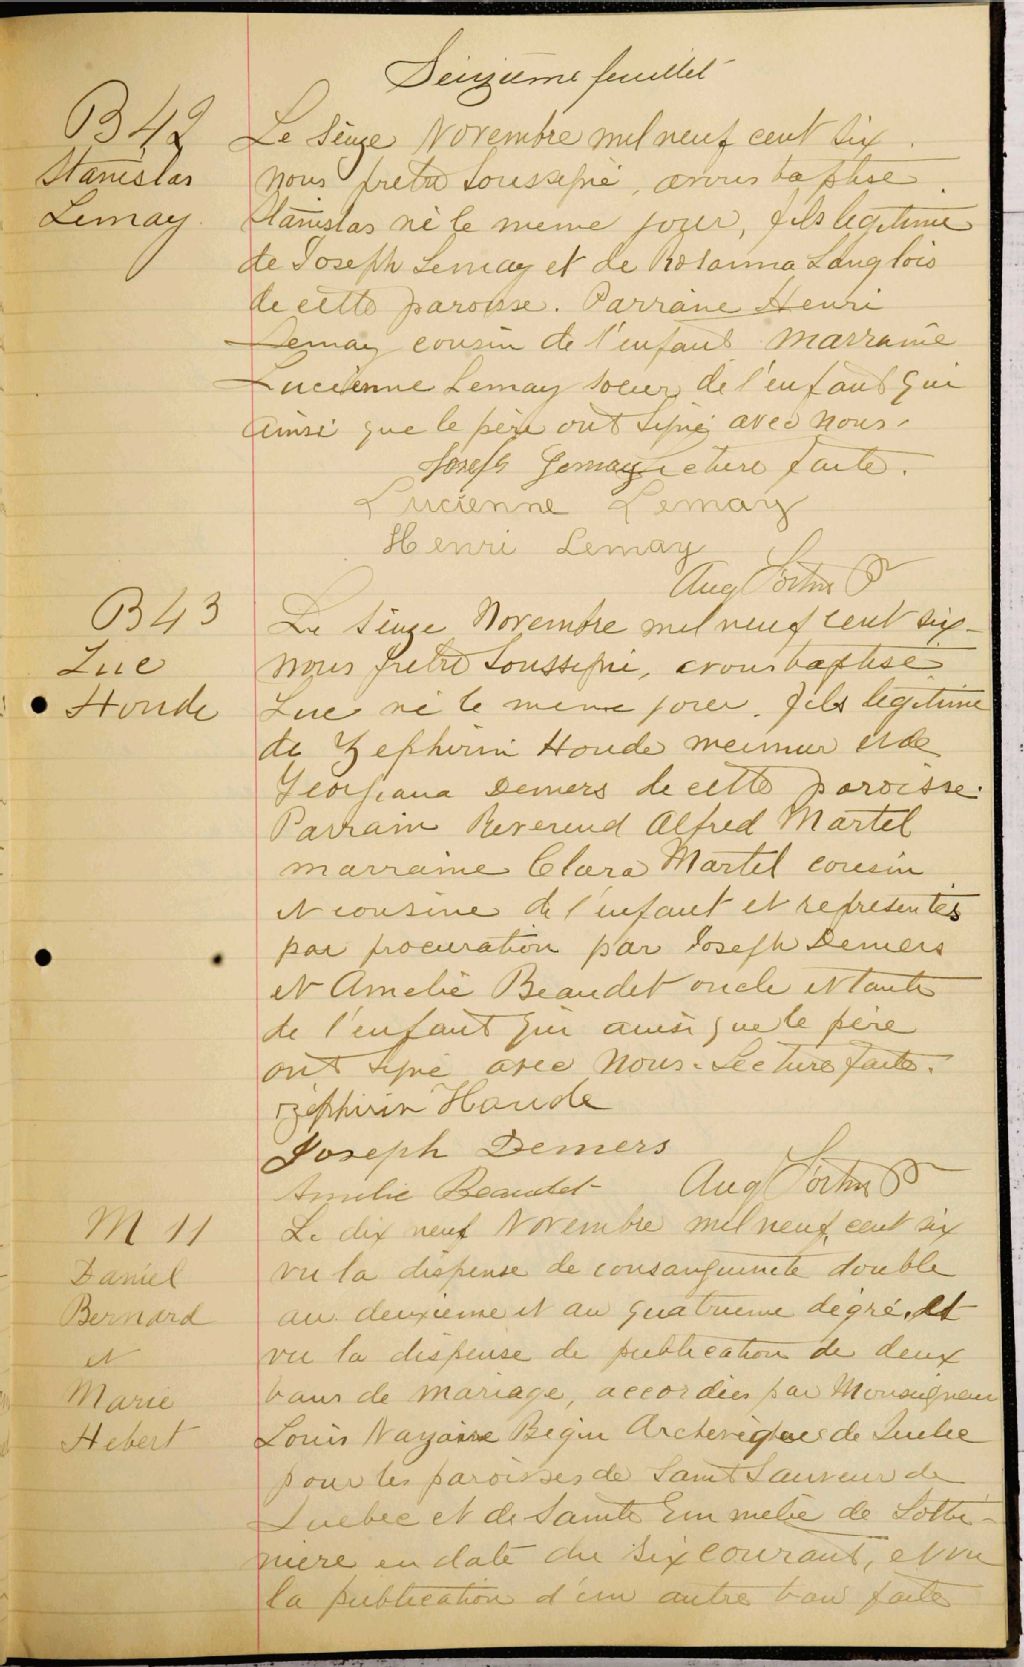 Seizième feuillet
B 42
Stanislas
Lemay
Le Seize Novembre mil neuf cent six.
nous prêtre Soussigné, avons baptisé
Stanislas né le meme jour, fils légitime
de Joseph Lemay et de Rosanna Langlois
de cette paroisse. Parraine Henri
Lemay cousin de l'enfant marraine
Lucienne Lemay soeur de l'enfant qui
ainsi que le père ont signé avec nous.
Joseph Lemay Lecture faite.
Lucienne Lemay
Henri Lemay
Aug Fortin P
B 43
Luc
Houde
Le Seize Novembre mil neuf cent six
nous prêtre Soussigné, avons baptisé
Luc né le meme jour. fils légitime
de Zephirin Houde meunier et de
Georgiana Demers de cette paroisse.
Parrain Reverend Alfred Martel
marraine Clara Martel cousin
et cousine de l'enfant et representés
par procuration par Joseph Demers
et Amelie Beaudet oncle et tante
de l'enfant qui ainsi que le père
ont signé avec nous. Lecture faite.
Zéphirin Houde
Joseph Demers
Amelie Beaudet Aug Fortin P
M 11
Daniel
Bernard
et
Marie
Hebert
Le dix neuf Novembre mil neuf cent six
vu la dispense de consanguinité double
au deuxieme et au quatrieme degré, et
vu la dispense de publication de deux
bans de mariage, accordées par Monseigneur
Louis Nazaire Begin Archevêque de Quebec
pour les paroisses de Saint Sauveur de
Quebec et de Sainte Emmelie de Lotbi-
niere en date du six courant, et vu
la publication d'un autre ban faite